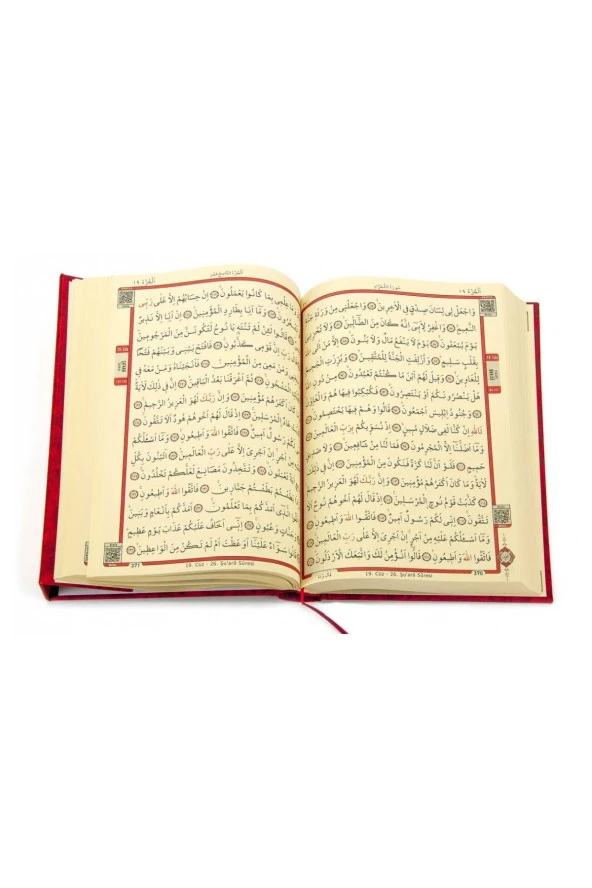 اَلْجُزْءُ ١٩
سُورَةُ الشُّعَرَاءِ
وَاجْعَلْ لِى لِسَانَ صِدْقٍ فِى الْاٰخِرِينَ وَاجْعَلْنِى مِنْ وَرَثَةِ جَنَّةِ
النَّعِيمِ وَاغْفِرْ لِاَبِى اِنَّهُ كَانَ مِنَ الضَّالِّينَ وَلَا تُخْزِنِى
يَوْمَ يُبْعَثُونَ يَوْمَ لَا يَنْفَعُ مَالٌ وَلَا بَنُونَ اِلَّا مَنْ اَتَى اللّٰهَ
بِقَلْبٍ سَلِيمٍ وَاُزْلِفَتِ الْجَنَّةُ لِلْمُتَّقِينَ وَبُرِّزَتِ الْجَحِيمُ
لِلْغَاوِينَ وَقِيلَ لَهُمْ اَيْنَ مَا كُنْتُمْ تَعْبُدُونَ مِنْ دُونِ اللّٰهِ
هَلْ يَنْصُرُونَكُمْ اَوْ يَنْتَصِرُونَ فَكُبْكِبُوا فِيهَا هُمْ وَالْغَاوُونَ
وَجُنُودُ اِبْلِيسَ اَجْمَعُونَ قَالُوا وَهُمْ فِيهَا يَخْتَصِمُونَ
تَاللّٰهِ اِنْ كُنَّا لَفِى ضَلَالٍ مُبِينٍ اِذْ نُسَوِّيكُمْ بِرَبِّ الْعَالَمِينَ
وَمَا اَضَلَّنَا اِلَّا الْمُجْرِمُونَ فَمَا لَنَا مِنْ شَافِعِينَ وَلَا صَدِيقٍ
حَمِيمٍ فَلَوْ اَنَّ لَنَا كَرَّةً فَنَكُونَ مِنَ الْمُؤْمِنِينَ اِنَّ فِى ذٰلِكَ
لَاٰيَةً وَمَا كَانَ اَكْثَرُهُمْ مُؤْمِنِينَ وَاِنَّ رَبَّكَ لَهُوَ الْعَزِيزُ الرَّحِيمُ
كَذَّبَتْ قَوْمُ نُوحٍ الْمُرْسَلِينَ اِذْ قَالَ لَهُمْ اَخُوهُمْ نُوحٌ اَلَا
تَتَّقُونَ اِنِّى لَكُمْ رَسُولٌ اَمِينٌ فَاتَّقُوا اللّٰهَ وَاَطِيعُونِ
وَمَا اَسْـَٔلُكُمْ عَلَيْهِ مِنْ اَجْرٍ اِنْ اَجْرِىَ اِلَّا عَلٰى رَبِّ الْعَالَمِينَ
فَاتَّقُوا اللّٰهَ وَاَطِيعُونِ قَالُوا اَنُؤْمِنُ لَكَ وَاتَّبَعَكَ الْاَرْذَلُونَ
19. Cüz - 26. Şu'arâ Sûresi
370
اَلْجُزْءُ التَّاسِعَ عَشَرَ
اَلْجُزْءُ ١٩
عِلْمِى بِمَا كَانُوا يَعْمَلُونَ اِنْ حِسَابُهُمْ اِلَّا عَلٰى رَبِّى
وَمَا اَنَا بِطَارِدِ الْمُؤْمِنِينَ اِنْ اَنَا اِلَّا نَذِيرٌ
قَالُوا لَئِنْ لَمْ تَنْتَهِ يَا نُوحُ لَتَكُونَنَّ مِنَ الْمَرْجُومِينَ
رَبِّ اِنَّ قَوْمِى كَذَّبُونِ فَافْتَحْ بَيْنِى وَبَيْنَهُمْ فَتْحًا
وَمَنْ مَعِىَ مِنَ الْمُؤْمِنِينَ فَاَنْجَيْنَاهُ وَمَنْ مَعَهُ
الْمَشْحُونِ ثُمَّ اَغْرَقْنَا بَعْدُ الْبَاقِينَ اِنَّ فِى ذٰلِكَ لَاٰيَةً
كَانَ اَكْثَرُهُمْ مُؤْمِنِينَ وَاِنَّ رَبَّكَ لَهُوَ الْعَزِيزُ الرَّحِيمُ
الْمُرْسَلِينَ اِذْ قَالَ لَهُمْ اَخُوهُمْ هُودٌ اَلَا تَتَّقُونَ
لَكُمْ رَسُولٌ اَمِينٌ فَاتَّقُوا اللّٰهَ وَاَطِيعُونِ وَمَا اَسْـَٔلُكُمْ
مِنْ اَجْرٍ اِنْ اَجْرِىَ اِلَّا عَلٰى رَبِّ الْعَالَمِينَ اَتَبْنُونَ بِكُلِّ
وَتَتَّخِذُونَ مَصَانِعَ لَعَلَّكُمْ تَخْلُدُونَ
بَطَشْتُمْ بَطَشْتُمْ جَبَّارِينَ فَاتَّقُوا اللّٰهَ وَاَطِيعُونِ
الَّذِى اَمَدَّكُمْ بِمَا تَعْلَمُونَ اَمَدَّكُمْ بِاَنْعَامٍ وَبَنِينَ
وَعُيُونٍ اِنِّى اَخَافُ عَلَيْكُمْ عَذَابَ يَوْمٍ عَظِيمٍ
قَالُوا سَوَاءٌ عَلَيْنَا اَوَعَظْتَ اَمْ لَمْ تَكُنْ مِنَ الْوَاعِظِينَ
19. Cüz - 26. Şu'arâ Sûresi
371